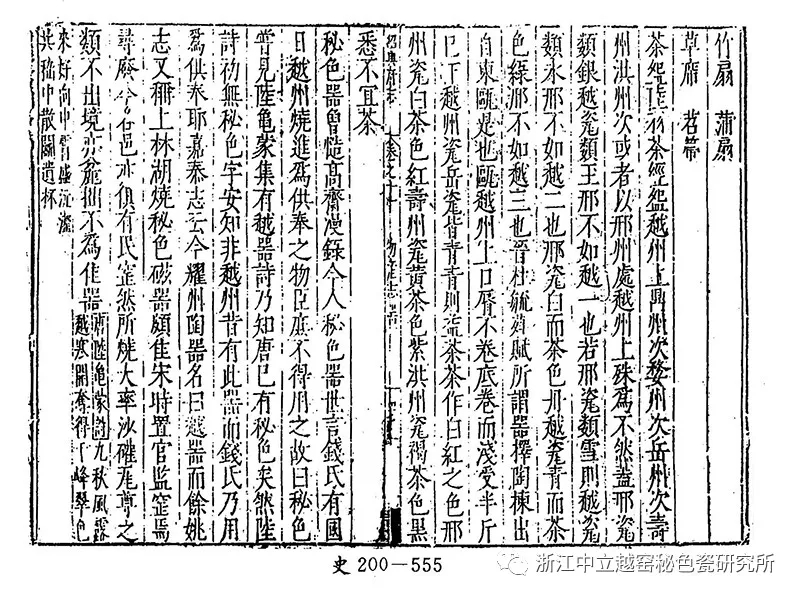 竹扇 蒲扇
草蓆 苕箒
茶盌陸羽茶經盌越州上鼎州次婺州次岳州次壽
州洪州次或者以邢州處越州上殊為不然蓋邢瓷
類銀越瓷類玉邢不如越一也若邢瓷類雪則越瓷
類氷邢不如越二也邢瓷白而茶色丹越瓷青而茶
色綠邢不如越三也晉杜毓荈賦所謂器擇陶棟出
自東甌是也甌越州上口脣不卷底卷而淺受半斤
已下越州瓷岳瓷皆青青則益茶茶作白紅之色邢
州瓷白茶色紅壽州瓷黃茶色紫洪州瓷褐茶色黑
悉不宜茶
紹興府志 卷之十 物產志 器
秘色器曾慥高齋漫錄今人秘色器世言錢氏有國
日越州燒進為供奉之物臣庶不得用之故曰秘色
嘗見陸龜蒙集有越器詩乃知唐已有秘色矣然陸
詩初無秘色字安知非越州昔有此器而錢氏乃用
為供奉耶嘉泰志云今耀州陶器名曰越器而餘姚
志又稱上林湖燒秘色磁器頗佳宋時置官監窑焉
尋廢今各邑亦俱有民窑然所燒大率沙礶瓦尊之
類不出境亦麤拙不為佳器唐陸龜蒙詩九秋風露
越窑開奪得千峰翠色
來好向中宵盛沆瀣
共嵇中散鬭遺杯
史 200—555
浙江中立越窑秘色瓷研究所